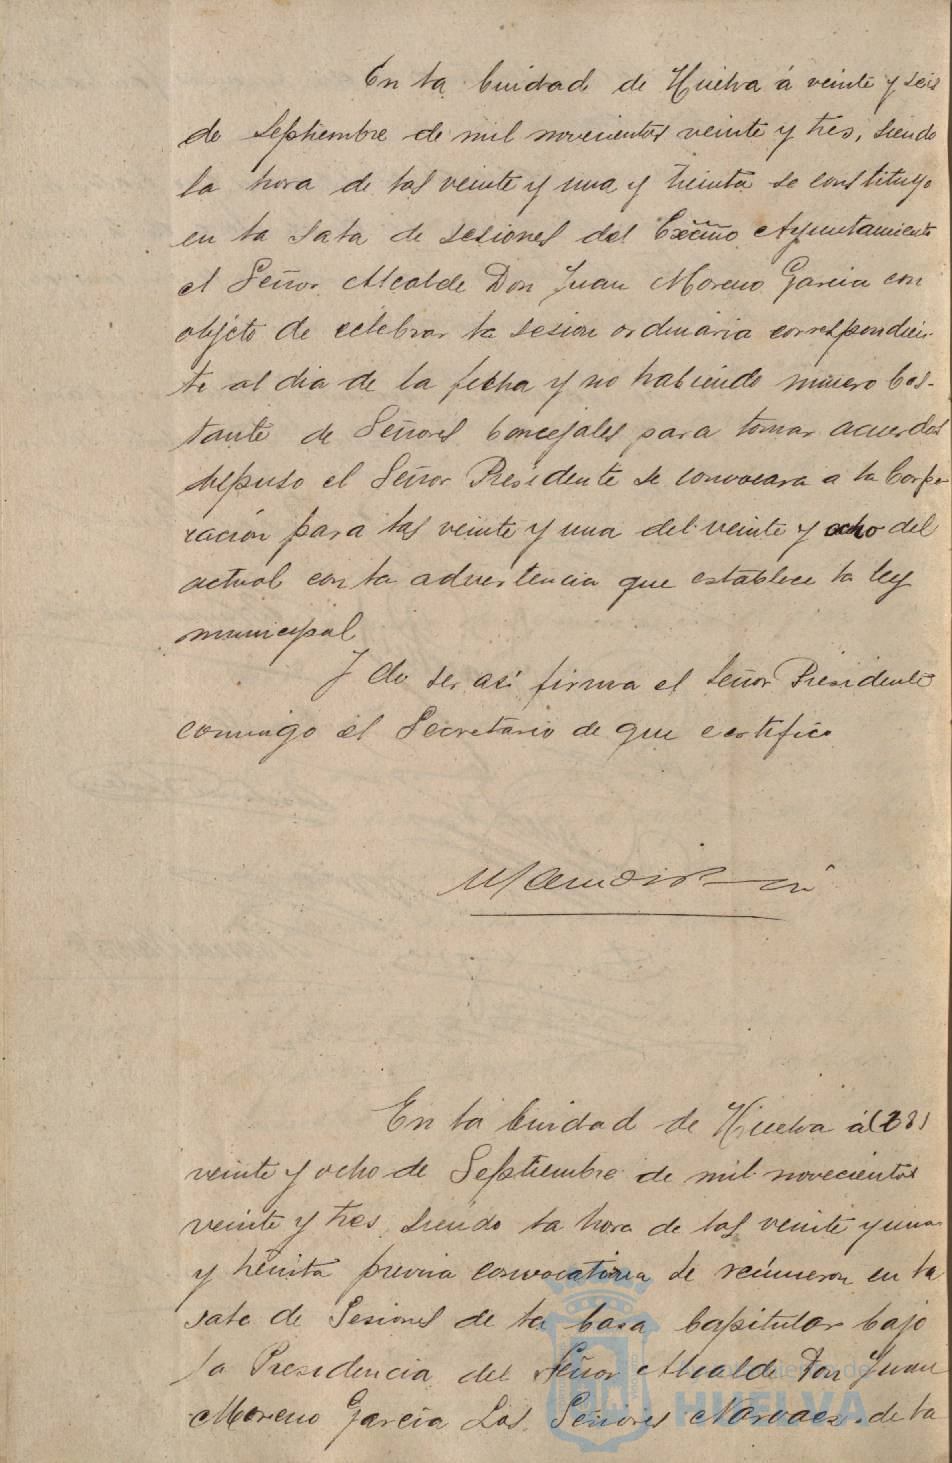 En la Ciudad de Huelva á veinte y seis
de Septiembre de mil novecientos veinte y tres, siendo
la hora de las veinte y una y treinta se constituyo
en la sala de sesiones del Excmo Ayuntamiento
el Señor Alcalde Don Juan Moreno Garcia con
objeto de celebrar la sesion ordinaria correspondien-
te al dia de la fecha y no habiendo numero bas-
tante de Señores Concejales para tomar acuerdos
dispuso el Señor Presidente se convocara a la Corpo-
ración para las veinte y una del veinte y ocho del
actual con la advertencia que establece la ley
municipal
Y de ser asi firma el Señor Presidente
conmigo el Secretario de que certifico
En la Ciudad de Huelva á (28)
veinte y ocho de Septiembre de mil novecientos
veinte y tres siendo la hora de las veinte y una
y treinta previa convocatoria se reúnieron en la
sala de Sesiones de la Casa Capitular bajo
la Presidencia del Señor Alcalde Don Juan
Moreno García Los Señores Narvaez, de la
Ayuntamiento de
HUELVA